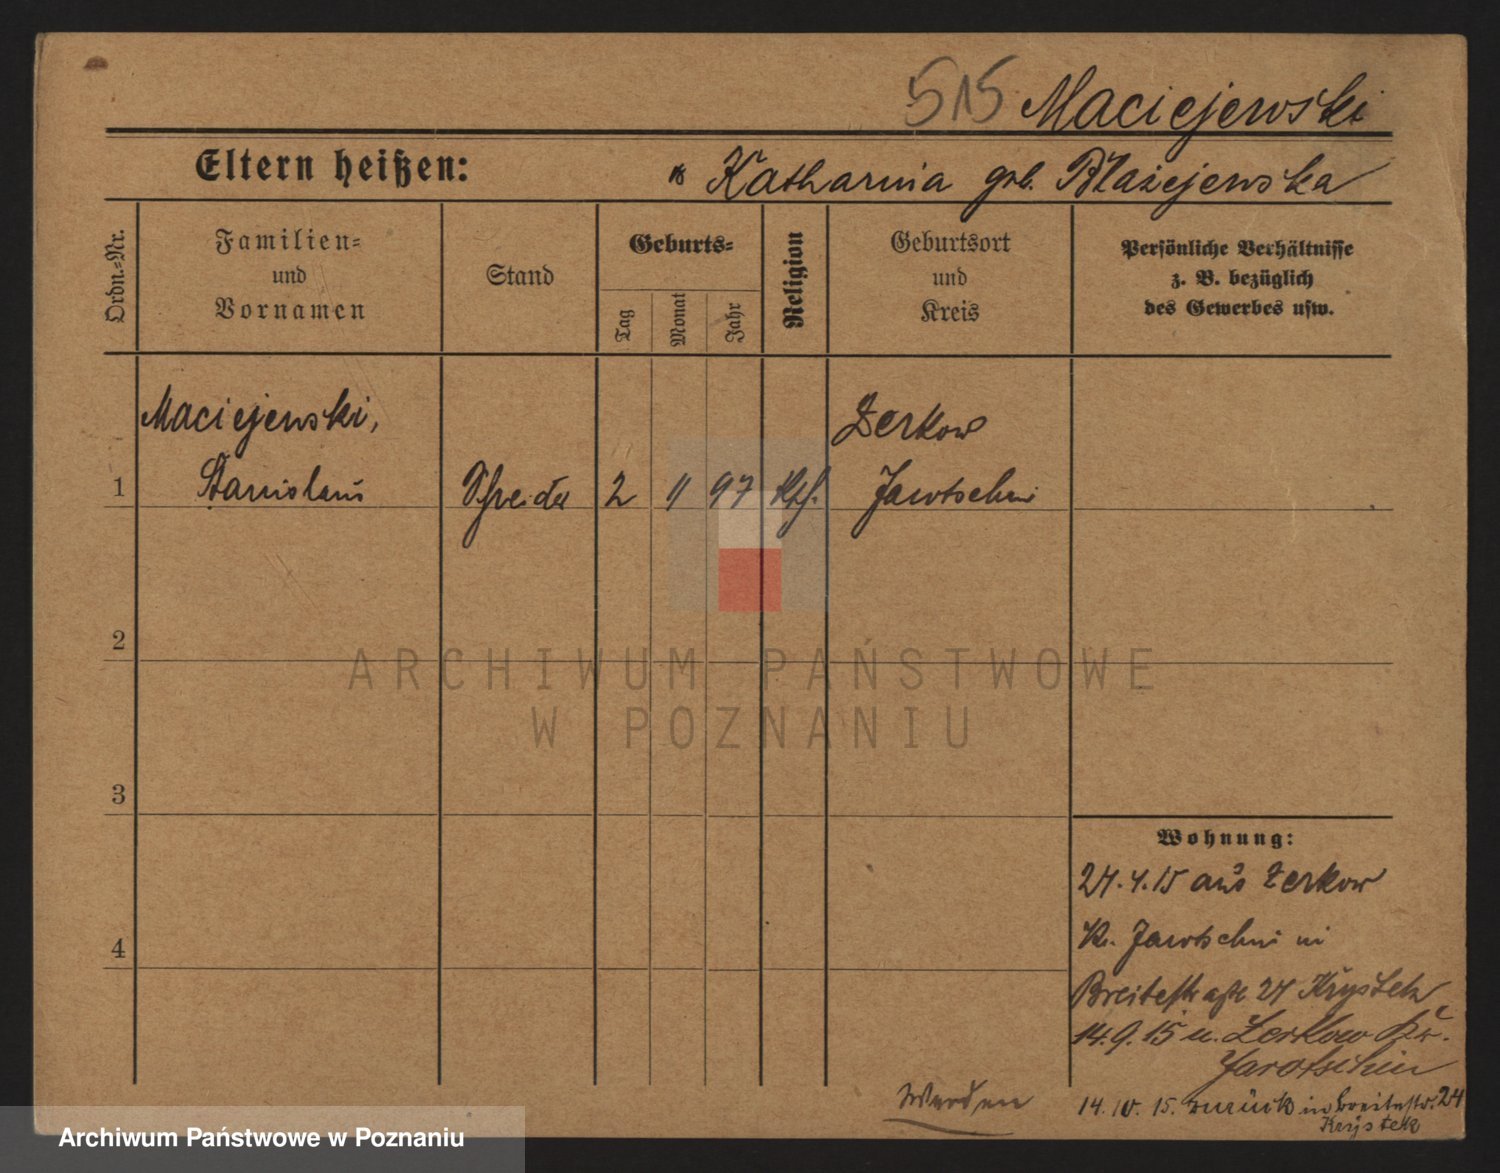 515 Maciejewski
Eltern heißen: Katharina geb. Błażejewska
Ordn.-Nr.
Familien-
und
Vornamen
Stand
Geburts-
Tag
Monat
Jahr
Religion
Geburtsort
und
Kreis
Persönliche Verhältnisse
z. B. bezüglich
des Gewerbes usw.
Maciejewski,
Zerkow
1 Stanislaus Schneider 2 11 97 Kth. Jarotschin
2
ARCHIWUM PAŃSTWOWE
W POZNANIU
3
Wohnung:
24.4.15 aus Zerkow
4 Kr. Jarotschin in
Breitestraße 24 Krystek
14.9.15 n. Zerkow Kr.
Jarotschin
14.10.15. zurück in Breitestr. 24
Krystek
Archiwum Państwowe w Poznaniu